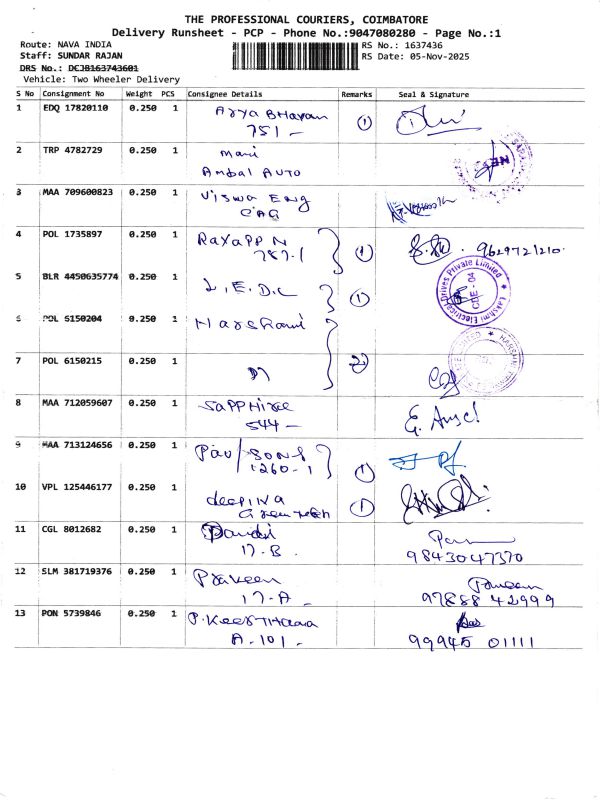 THE PROFESSIONAL COURIERS, COIMBATORE
Delivery Runsheet - PCP - Phone No.:9047080280 - Page No.:1
Route: NAVA INDIA
RS No.: 1637436
Staff: SUNDAR RAJAN
RS Date: 05-Nov-2025
DRS No.: DCJB163743601
Vehicle: Two Wheeler Delivery
S No Consignment No Weight PCS Consignee Details Remarks Seal & Signature
1 EDQ 17820110 0.250 1 Arya Bhavan 1
751 -
2 TRP 4782729 0.250 1 Mani
Ambal Auto
3 MAA 709600823 0.250 1 Viswa Eng
CAG
4 POL 1735897 0.250 1 1 9629721210.
787-1
5 BLR 4450635774 0.250 1 L.E.D.C 1
Lakshmi Electrical Drives Private Limited
CBE - 04
6 POL 6150204 0.250 1
7 POL 6150215 0.250 1 2
8 MAA 712059607 0.250 1 Sapphire
544 -
9 MAA 713124656 0.250 1 Pav/Sons 1
1260-1
10 VPL 125446177 0.250 1 1
11 CGL 8012682 0.250 1
17-B. 9843047370
12 SLM 381719376 0.250 1 Praveen
17-A. 97888 42999
13 PON 5739846 0.250 1 P.Keerthana
A-101- 99945 01111